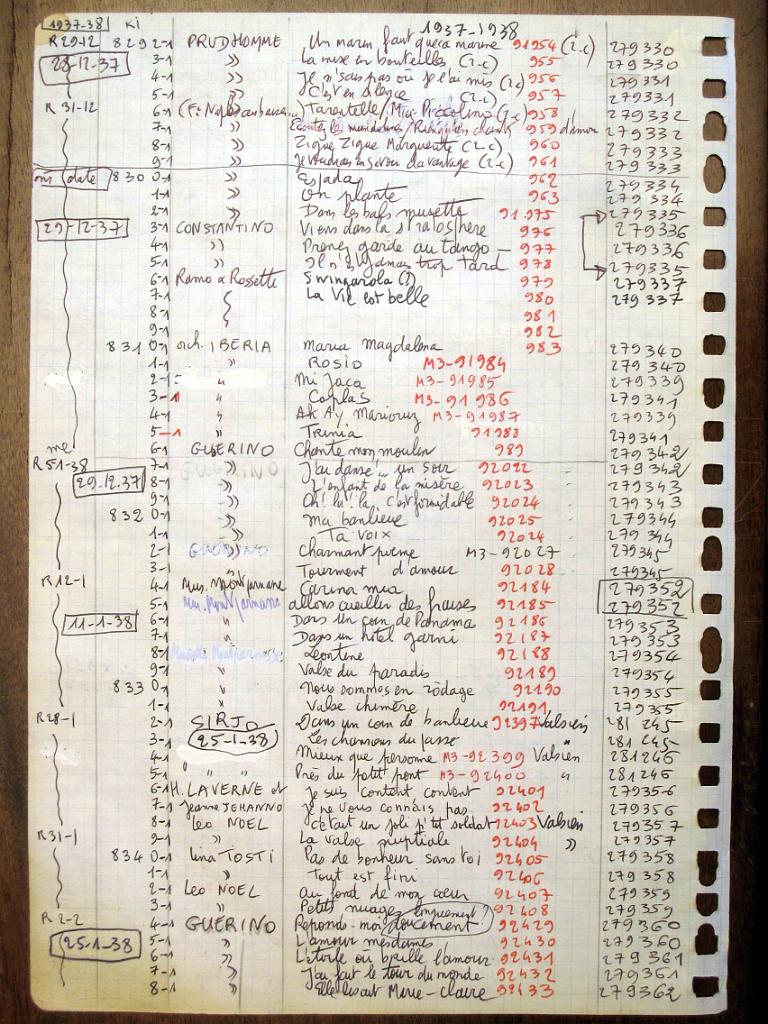 1937-38 Ki 1937-1938
R29-12 829 2-1 PRUDHOMME Un marin faut qu'ça marine 91954 (2.c) 279330
28-12-37 3-1 » La mise en bouteilles (2.c) 955 279330
4-1 » Je n'sais pas où je l'ai mis (2c) 956 279331
5-1 » C'est en silence (2.c) 957 279331
R 31-12 6-1 Tarentelle/Mia Piccolina (2.c) 958 279332
7-1 » Ecoutez les mandolines 959 279332
8-1 » Zigue Zigue Marguerite (2-c) 960 279333
9-1 » Je voudrais en savoir davantage (2.c) 961 279333
date 830 0-1 » Espada 962 279334
1-1 » On plante 963 279334
2-1 » Dans les bals musette 91975 279335
29-12-37 3-1 CONSTANTINO Viens dans la stratosphère 976 279336
4-1 » Prenez garde au tango 977 279336
5-1 » Il n'est jamais trop tard 978 279335
6-1 Ramo a Rossette Swingarola (?) 979 279337
7-1 La Vie est belle 980 279337
8-1 981
9-1 982
831 0-1 orch. IBERIA maria magdalena 983 279340
1-1 " ROSIO M3-91984 279340
2-1 " Mi jaca M3-91985 279339
3-1 " Coplas M3-91986 279341
4-1 " Ak Ay Mariouz M3-91987 279339
5-1 " Trinia 91988 279341
me 6-1 GUERINO Chante mon moulin 989 279342
R51-38 7-1 » J'ai dansé... un soir 92022 279342
29.12.37 8-1 » L'enfant de la misère 92023 279343
9-1 » Oh! la! la, c'est formidable 92024 279343
832 0-1 » ma banlieue 92025 279344
1-1 » Ta voix 92024 279344
2-1 GUERINO Charmant pierre M3-92027 279345
3-1 Tourment d'amour 92028 279345
R12-1 4-1 Mus. Montparnasse Carina mia 92184 279352
5-1 Mus. Montparnasse allons cueillir des fraises 92185 279352
11-1-38 6-1 " Dans un coin de Panama 92186 279353
7-1 " Dans un hôtel garni 92187 279353
8-1 Musette Montparnasse Léontine 92188 279354
9-1 " Valse du paradis 92189 279354
833 0-1 " Nous sommes en rodage 92190 279355
1-1 " Valse chimère 92191 279355
R28-1 2-1 SIRJO Dans un coin de banlieue 92397 Valsien 281245
3-1 25-1-38 Les chansons du passé " 281245
4-1 Mieux que personne M3-92399 Valsien 281246
5-1 " " Près du petit pont M3-92400 " 281246
6-1 H. LAVERNE et Je suis content content 92401 279356
7-1 Jeanne JEHANNO Je ne vous connais pas 92402 279356
8-1 Leo NOEL C'était un joli p'tit soldat 92403 Valsien 279357
R31-1 9-1 » La valse nuptiale 92404 » 279357
834 0-1 Lina TOSTI Pas de bonheur sans toi 92405 279358
1-1 » Tout est fini 92406 279358
2-1 Leo NOEL Au fond de mon coeur 92407 279359
3-1 » Petits nuages 92408 279359
R 2-2 4-1 GUERINO Réponds-moi doucement 92429 279360
25-1-38 5-1 » L'amour mesdames 92430 279360
6-1 » L'étoile où brille l'amour 92431 279361
7-1 » J'ai fait le tour du monde 92432 279361
8-1 » Elle lisait Marie-Claire 92433 279362